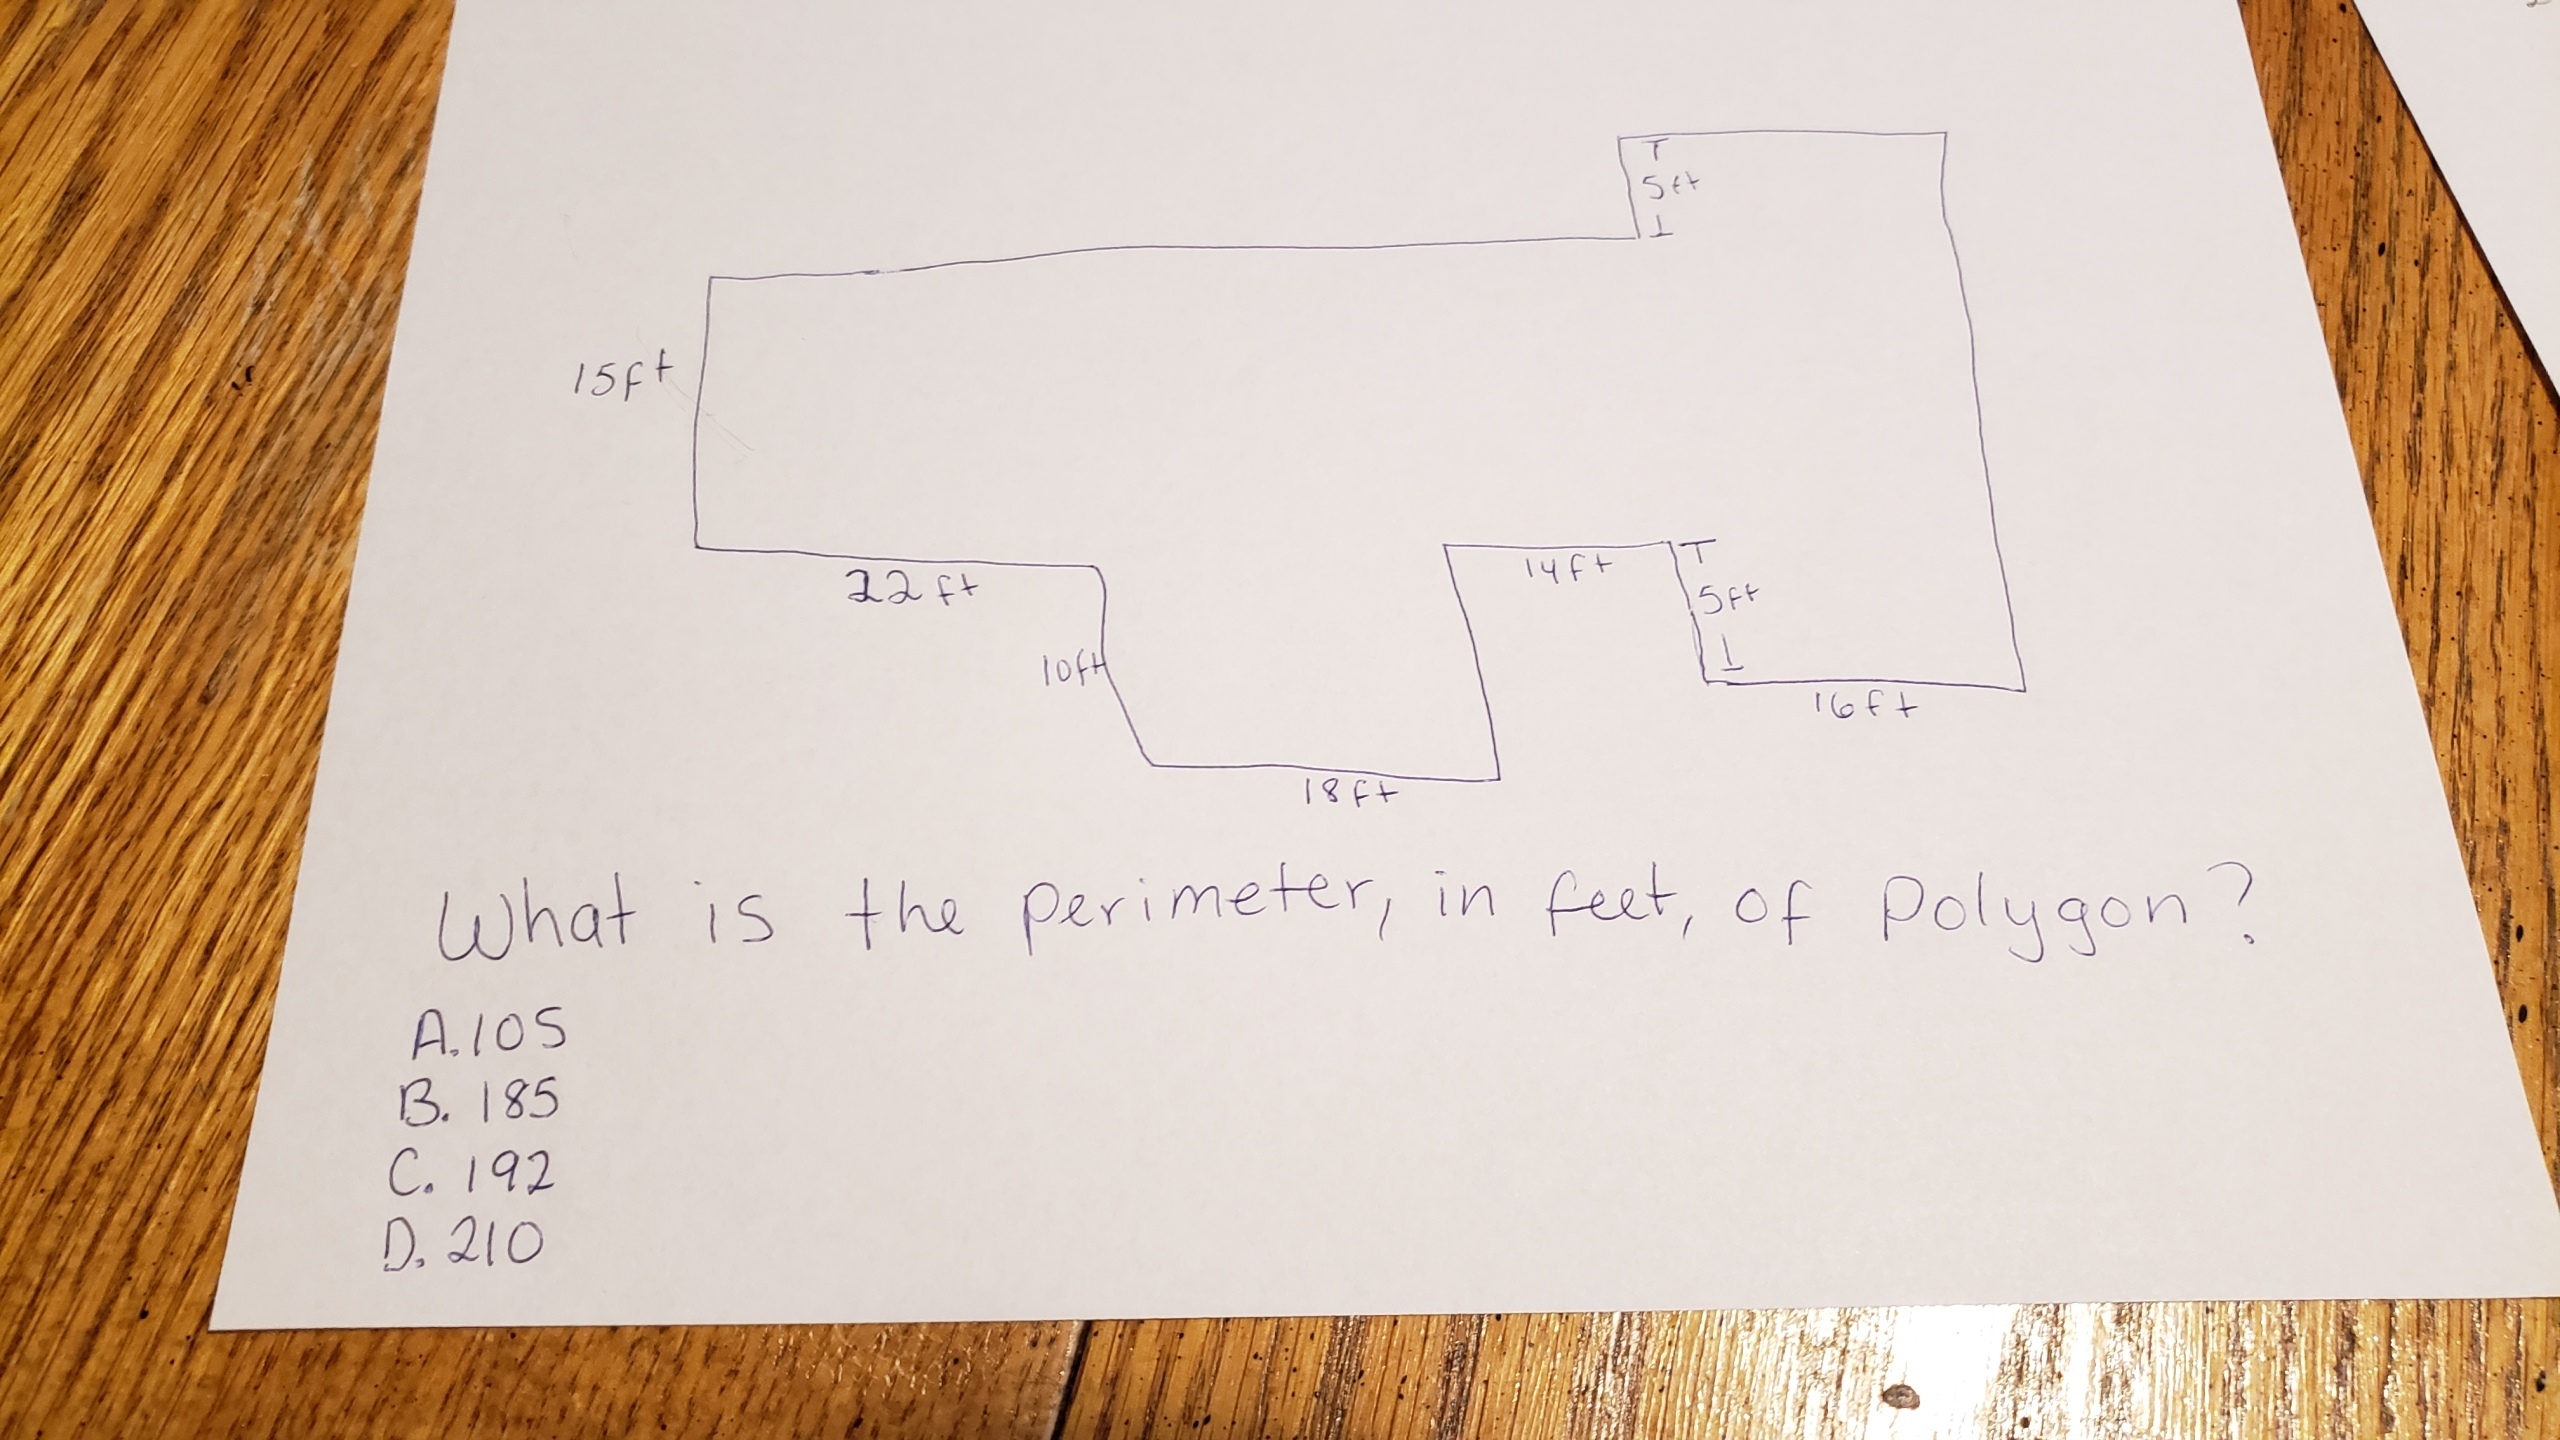 5ft
15ft
22 ft
14ft
5ft
10ft
16ft
18ft
What is the perimeter, in feet, of Polygon?
A. 105
B. 185
C. 192
D. 210